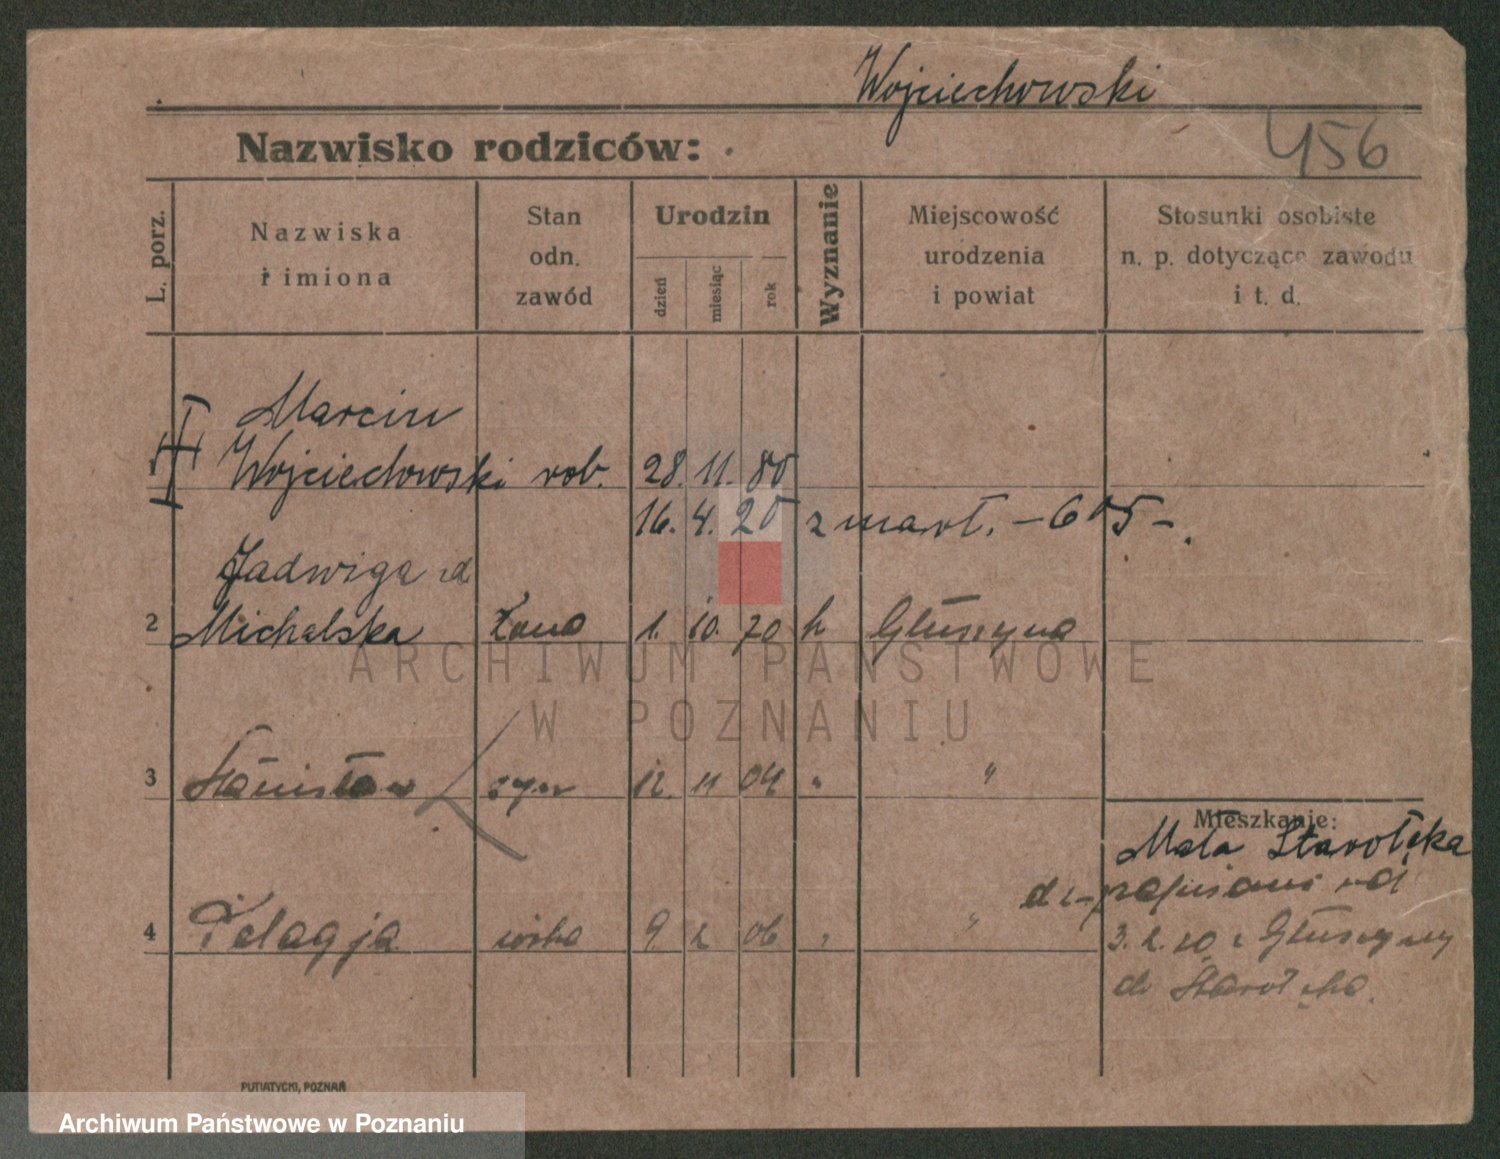 Wojciechowski
Nazwisko rodziców:
456
L. porz.
Nazwiska
i imiona
Stan
odn.
zawód
Urodzin
dzień
miesiąc
rok
Wyznanie
Miejscowość
urodzenia
i powiat
Stosunki osobiste
n. p. dotyczące zawodu
i t. d.
Marcin
1 Wojciechowski rob. 28. 11. 80
16. 4. 25 zmarł. – 605 –.
Jadwiga
2 Michalska żona 1. 10. 70 k Głuszyna
3 Stanisław syn 12. 11 04 " "
Mieszkanie:
Mała Starołęka
4 Pelagja 9 2 06 " "
3. 2. 20 z Głuszyny
do Starołęka.
PUTIATYCKI, POZNAŃ
ARCHIWUM PAŃSTWOWE
W POZNANIU
Archiwum Państwowe w Poznaniu